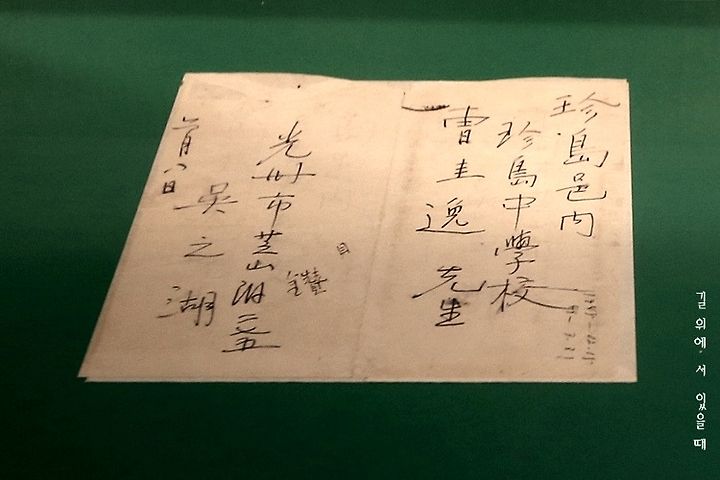 珍島邑内
珍島中學校
曺圭逸先生
光州市芝山洞二五
吳之湖
月八日
길 위에 서 있을 때